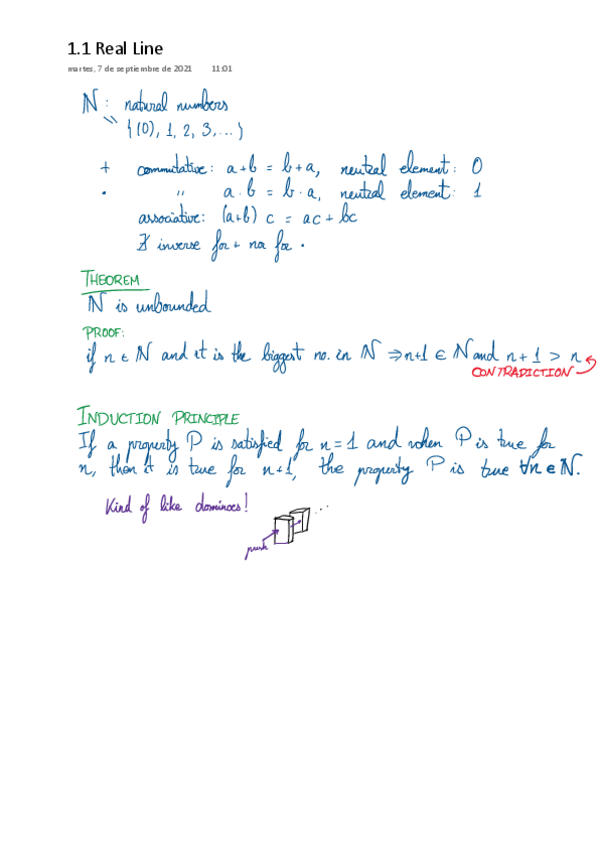 1.1 Real Line
martes, 7 de septiembre de 2021 11:01
ℕ : natural numbers
{(0), 1, 2, 3, ...}
+ commutative: a+b = b+a, neutral element: 0
· " a·b = b·a, neutral element: 1
associative: (a+b) c = ac + bc
∄ inverse for + na for ·
THEOREM
ℕ is unbounded
PROOF:
if n ∈ ℕ and it is the biggest no. in ℕ ⇒ n+1 ∈ ℕ and n+1 > n
CONTRADICTION
INDUCTION PRINCIPLE
If a property P is satisfied for n=1 and when P is true for
n, then it is true for n+1, the property P is true ∀n ∈ ℕ.
Kind of like dominoes!
...
push